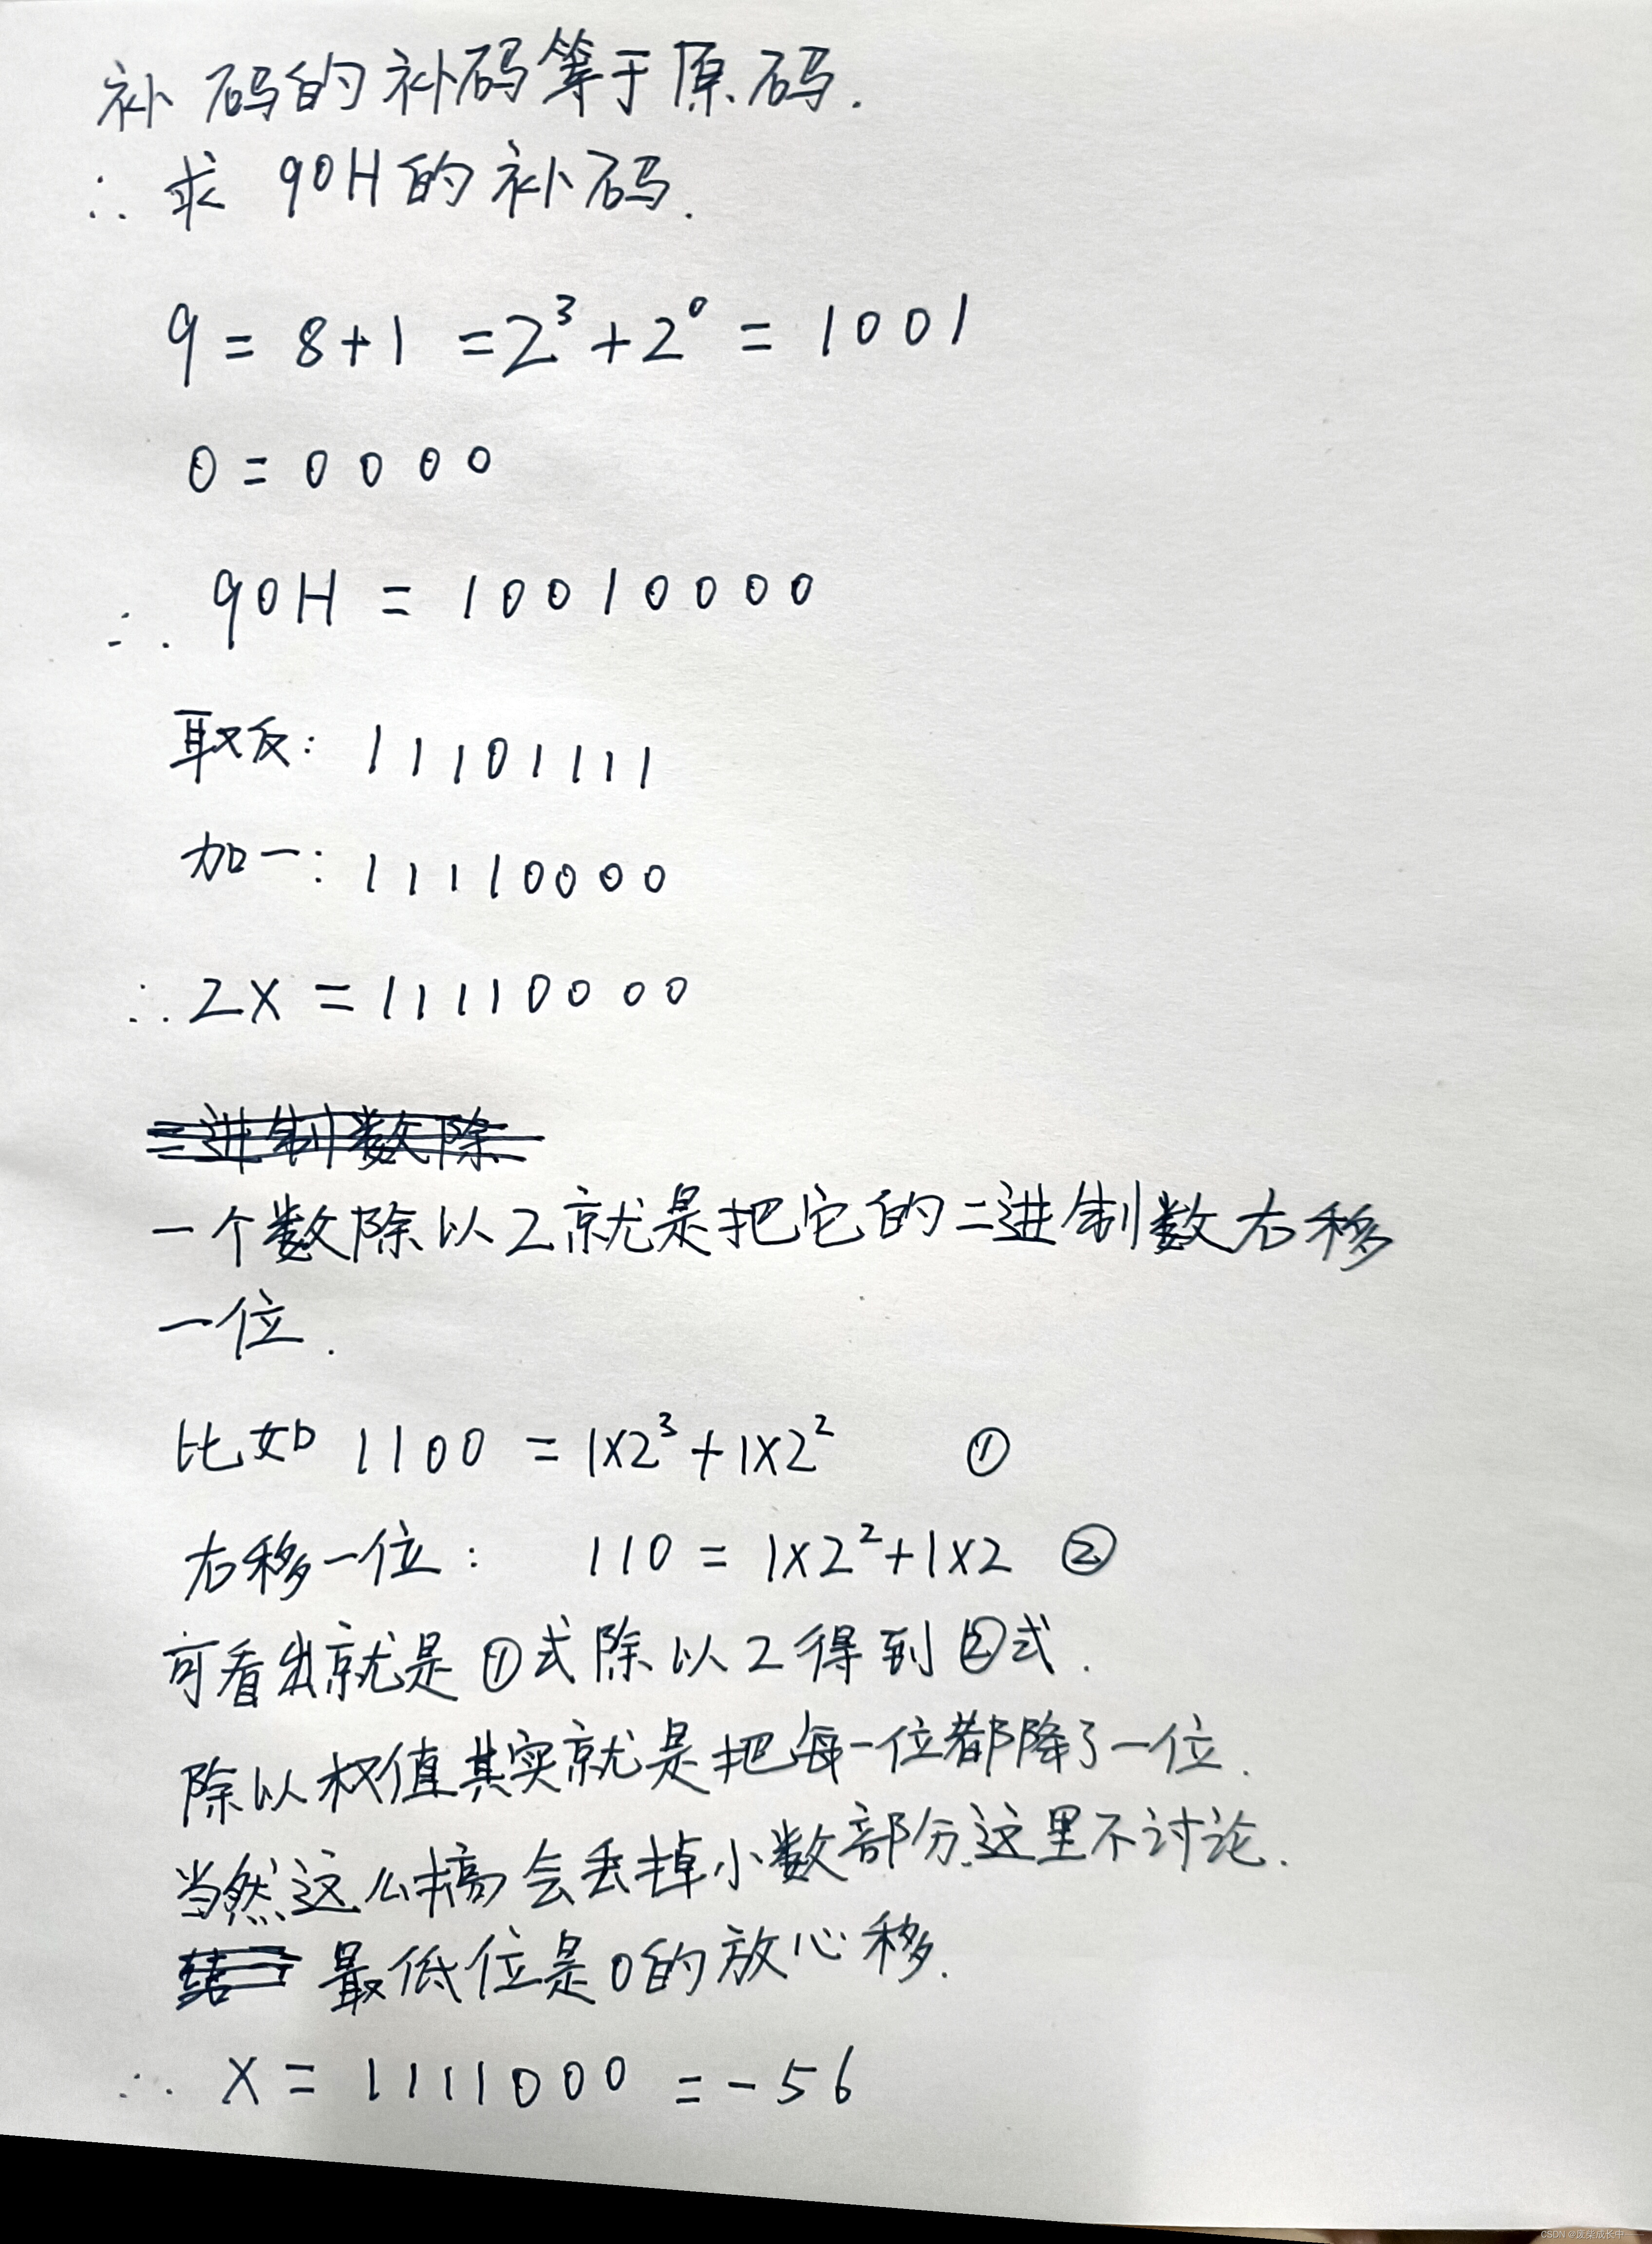 补码的补码等于原码.
∴ 求 90H的补码.
9 = 8+1 = 2³+2⁰ = 1001
0 = 0000
∴ 90H = 10010000
取反: 11101111
加一: 11110000
∴ 2X = 11110000
二进制数除
一个数除以2就是把它的二进制数右移
一位.
比如 1100 = 1×2³+1×2² ①
右移一位: 110 = 1×2²+1×2 ②
可看出就是①式除以2得到②式.
除以权值其实就是把每一位都降了一位.
当然这么搞会丢掉小数部分.这里不讨论.
最低位是0的放心移.
∴ X = 1111000 = -56
CSDN @废柴成长中